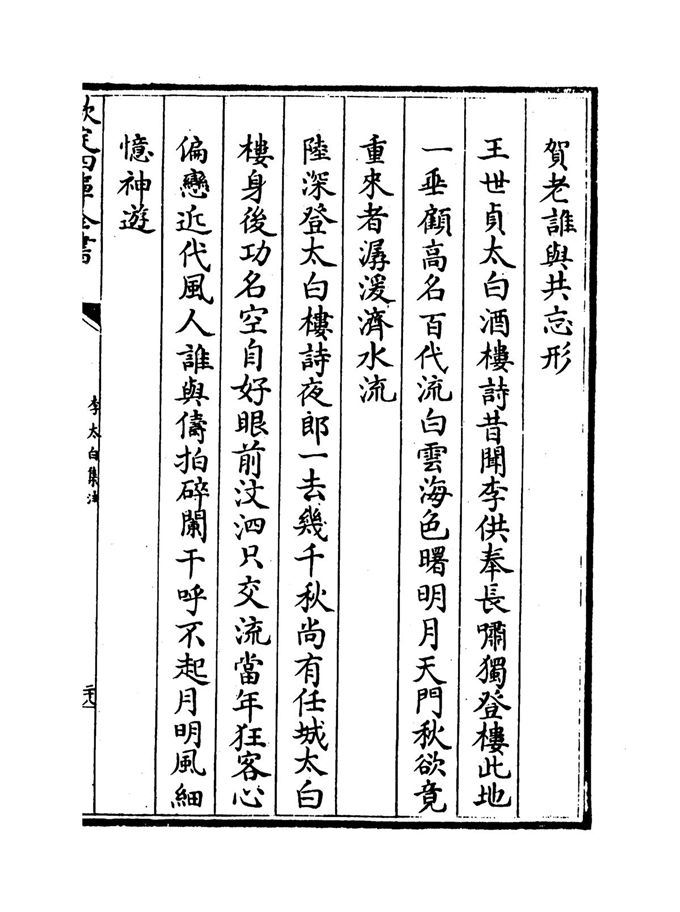 賀老誰與共忘形
王世貞太白酒樓詩昔聞李供奉長嘯獨登樓此地
一垂顧高名百代流白雲海色曙明月天門秋欲竟
重來者潺湲濟水流
陸深登太白樓詩夜郎一去幾千秋尚有任城太白
樓身後功名空自好眼前汶泗只交流當年狂客心
偏戀近代風人誰與儔拍碎闌干呼不起月明風細
憶神遊
欽定四庫全書
李太白集注